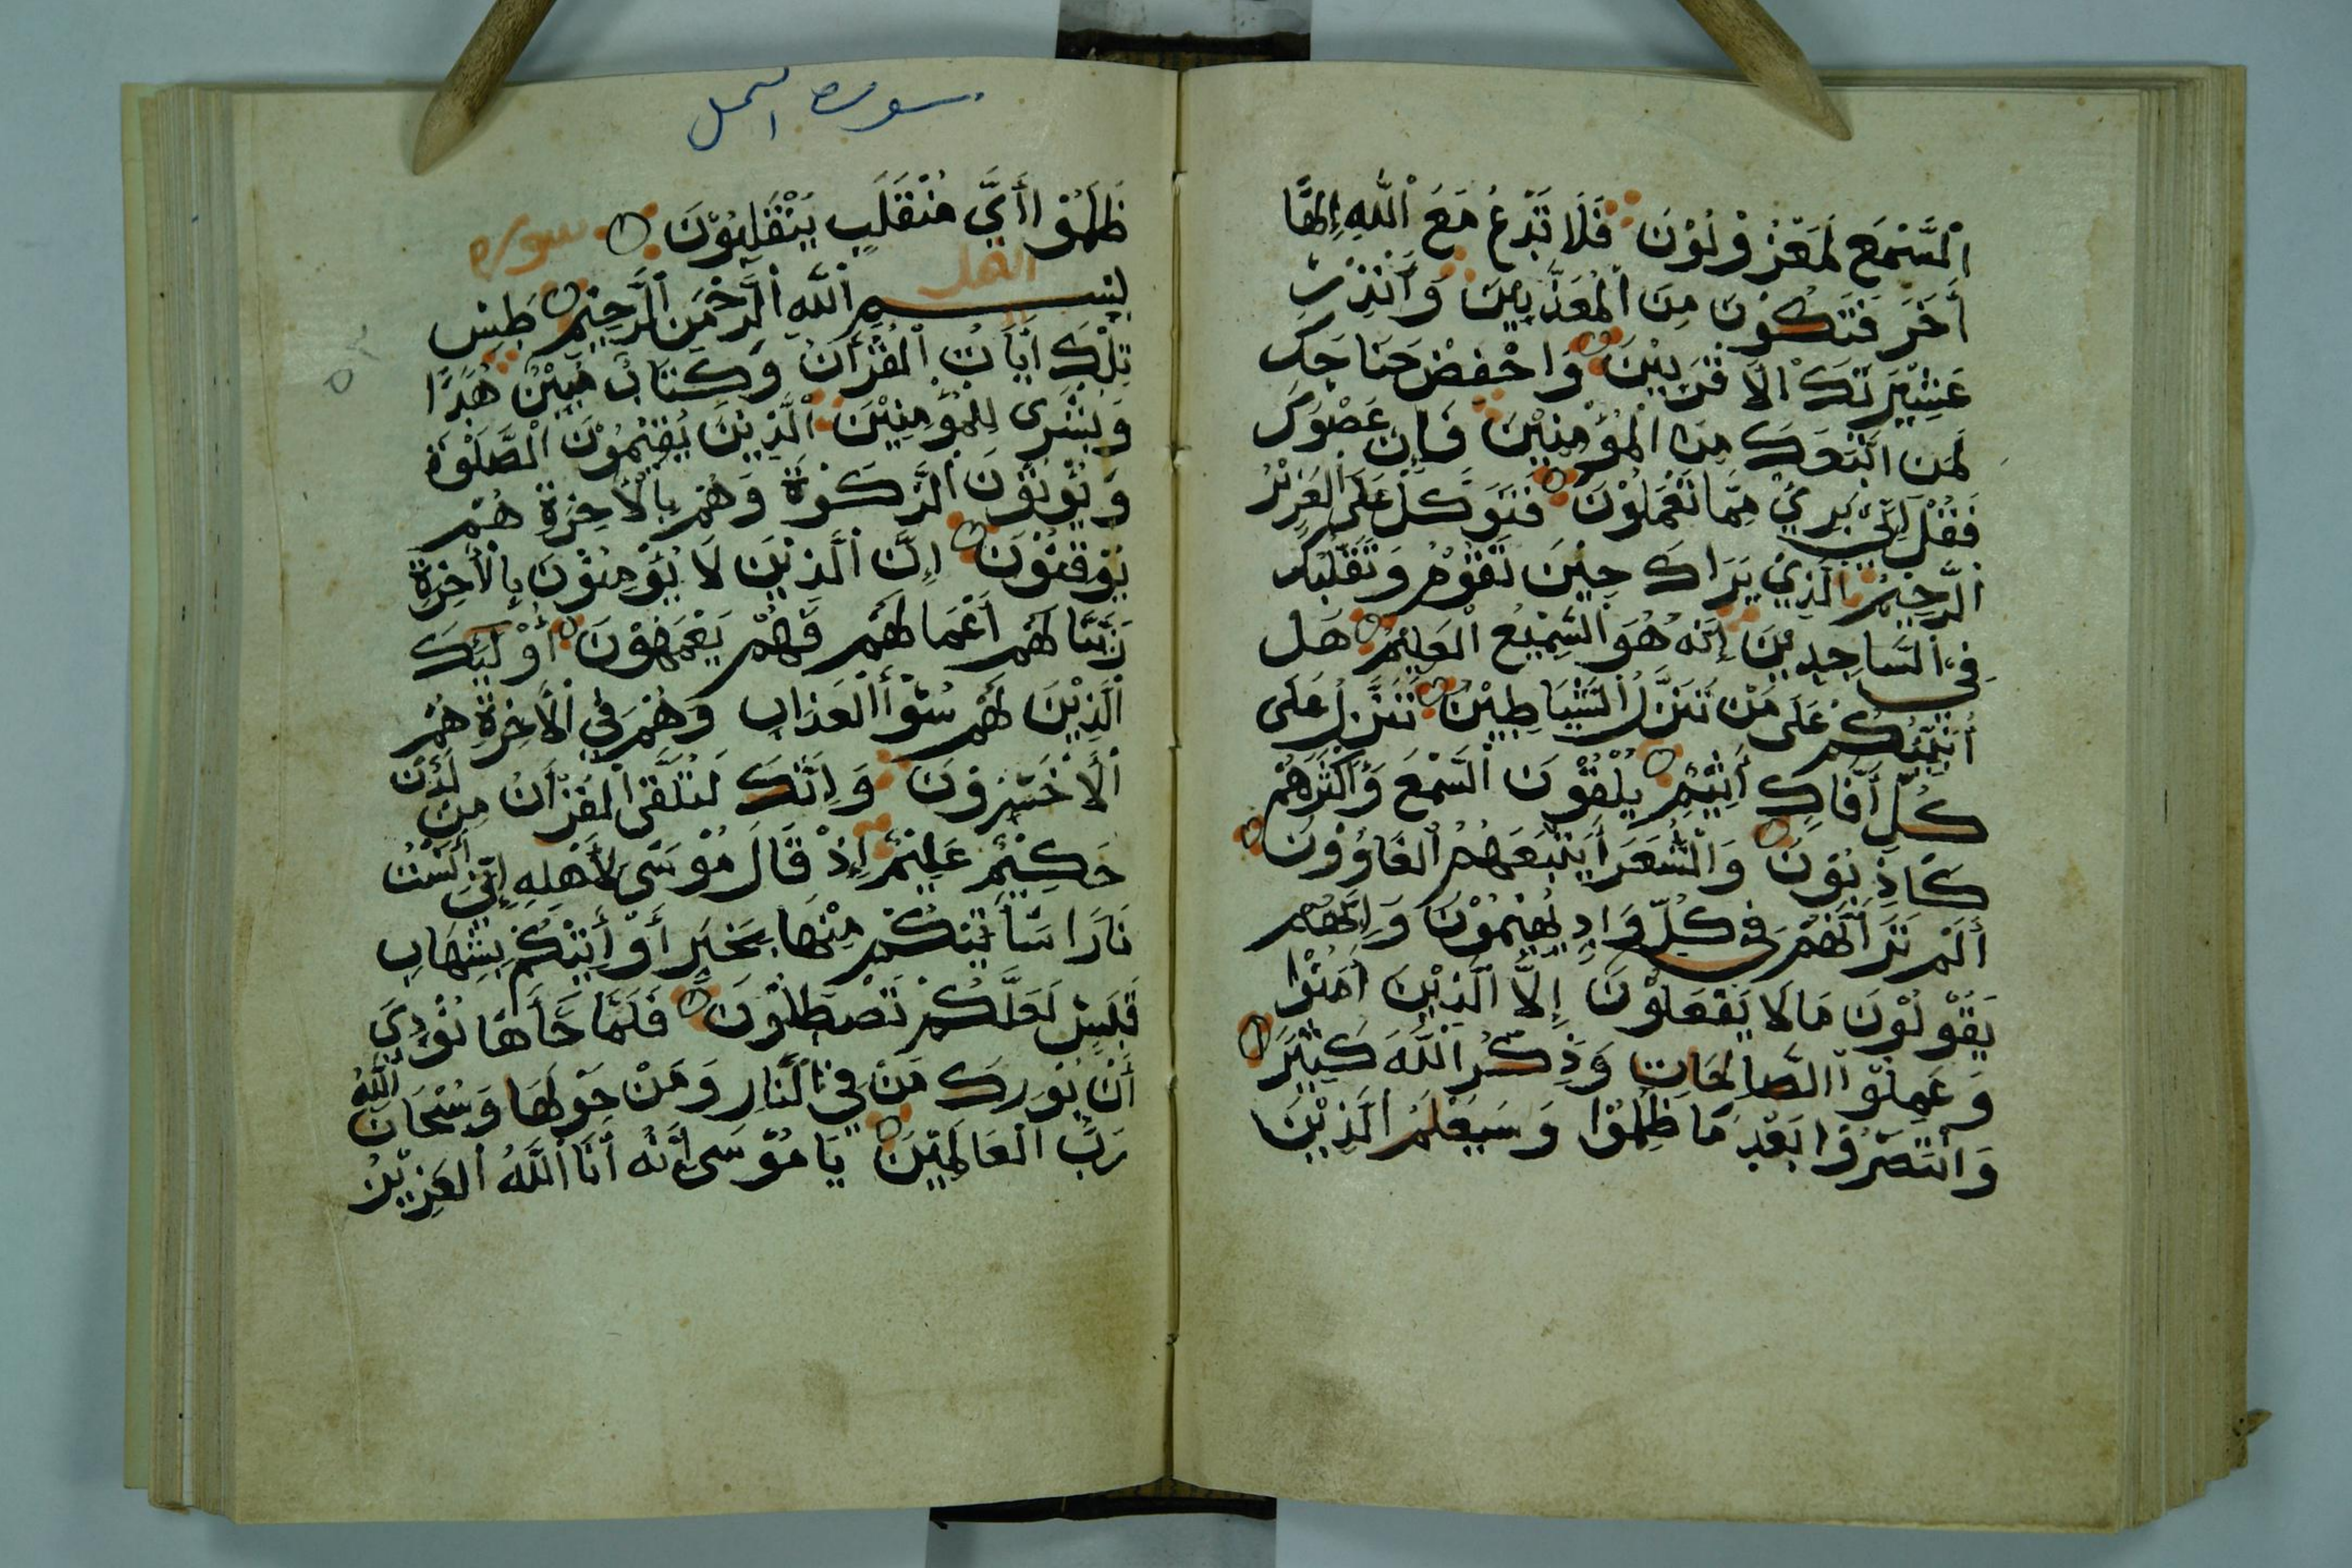 اَلسَّمْعِ لَمَعْزُوْلُوْنَ فَلَا تَدْعُ مَعَ اَللّٰهِ اِلٰهًا
أَخَرَ فَتَكُوْنَ مِنَ اَلْمُعَذَّبِيْنَ وَأَنْذِرْ
عَشِيْرَتَكَ اْلَاقْرَبِيْنَ وَاخْفِضْ جَنَاحَكَ
لِمَنِ اتَّبَعَكَ مِنَ الْمُؤْمِنِيْنَ فَإِنْ عَصَوْكَ
فَقُلْ اِنِّي بَرِيْ مِمَّا تَعْمَلُوْنَ فَتَوَكَّلْ عَلَى الْعَزِيْزِ
الرَّحِيْمِ الَّذِيْ يَرَاكَ حِيْنَ تَقُوْمُ وَتَقَلُّبَكَ
فِي السَّاجِدِيْنَ إِنَّهُ هُوَ السَّمِيْعُ الْعَلِيْمُ هَل
أُنَبِّئُكُمْ عَلَى مَنْ تَنَزَّلُ الشَّيَاطِيْنُ تَنَزَّلُ عَلَى
كُلِّ أَفَّاكٍ أَثِيْمٍ يُلْقُوْنَ السَّمْعَ وَأَكْثَرُهُمْ
كَاذِبُوْنَ وَالشُّعَرَأُ يَتَّبِعُهُمُ الْغَاوُوْنَ
أَلَمْ تَرَ أَنَّهُمْ فِي كُلِّ وَادٍ يَّهِيْمُوْنَ وَاِنَّهُمْ
يَقُوْلُوْنَ مَا لَا يَفْعَلُوْنَ إِلَّا الَّذِيْنَ اَمَنُوْا
وَعَمِلُوْا الصَّالِحَاتِ وَذِكْرُ اللّٰهَ كَثِيْرً
وَانْتَصَرُوْا بَعْدِ مَا ظُلِمُوْا وَسَيَعْلَمُ الَّذِيْنَ
سوره النمل
ظَلَمُوْا أَيَّ مُنْقَلَبٍ يَنْقَلِبُوْنَ سوره
النمل
بِسْمِ اللّٰهِ الرَّحْمٰنِ الرَّحِيْمِ طٰسٓ
تِلْكَ أَيَاتُ الْقُرْأَنُ وَكِتَابٌ مُبِيْنٌ هُدًا
وَبُشْرَى لِلْمُؤْمِنِيْنَ الَّذِيْنَ يُقِيْمُوْنَ الصَّلٰوةَ
وَيُؤْتُوْنَ الزَّكٰوةَ وَهُمْ بِالْاَخِرَةِ هُمْ
يُوْقِنُوْنَ اِنَّ الَّذِيْنَ لَا يُؤْمِنُوْنَ بِالْأَخِرَةِ
زَيَّنَّا لَهُمْ اَعْمَالَهُمْ فَهُمْ يَعْمَهُوْنَ أُوْلَئِكَ
الَّذِيْنَ لَهُمْ سُوْأُ الْعَذَابِ وَهُمْ فِي الْاَخِرَةِ هُمُ
الْاَخْسَرُوْنَ وَاِنَّكَ لَتُلَقَّى الْقُرْأَنُ مِنْ لَدُنْ
حَكِيْمٍ عَلِيْمٍ اِذْ قَالَ مُوْسَى لِأَهْلِهِ اِنِّي أَنَسْتُ
نَارًا سَأَتِيْكُمْ مِنْهَا بِخَبَرٍ أَوْ أَتِيْكُمْ بِشِهَابٍ
قَبَسٍ لَعَلَّكُمْ تَصْطَلُوْنَ فَلَمَّا جَأَهَا نُوْدِيَ
أَنْ بُوْرِكَ مَنْ فِي النَّارِ وَمَنْ حَوْلَهَا وَسُبْحَانَ اللّٰهِ
رَبِّ الْعَالَمِيْنَ يَا مُوْسَى أَنَّهُ أَنَا اللّٰهُ الْعَزِيْزُ